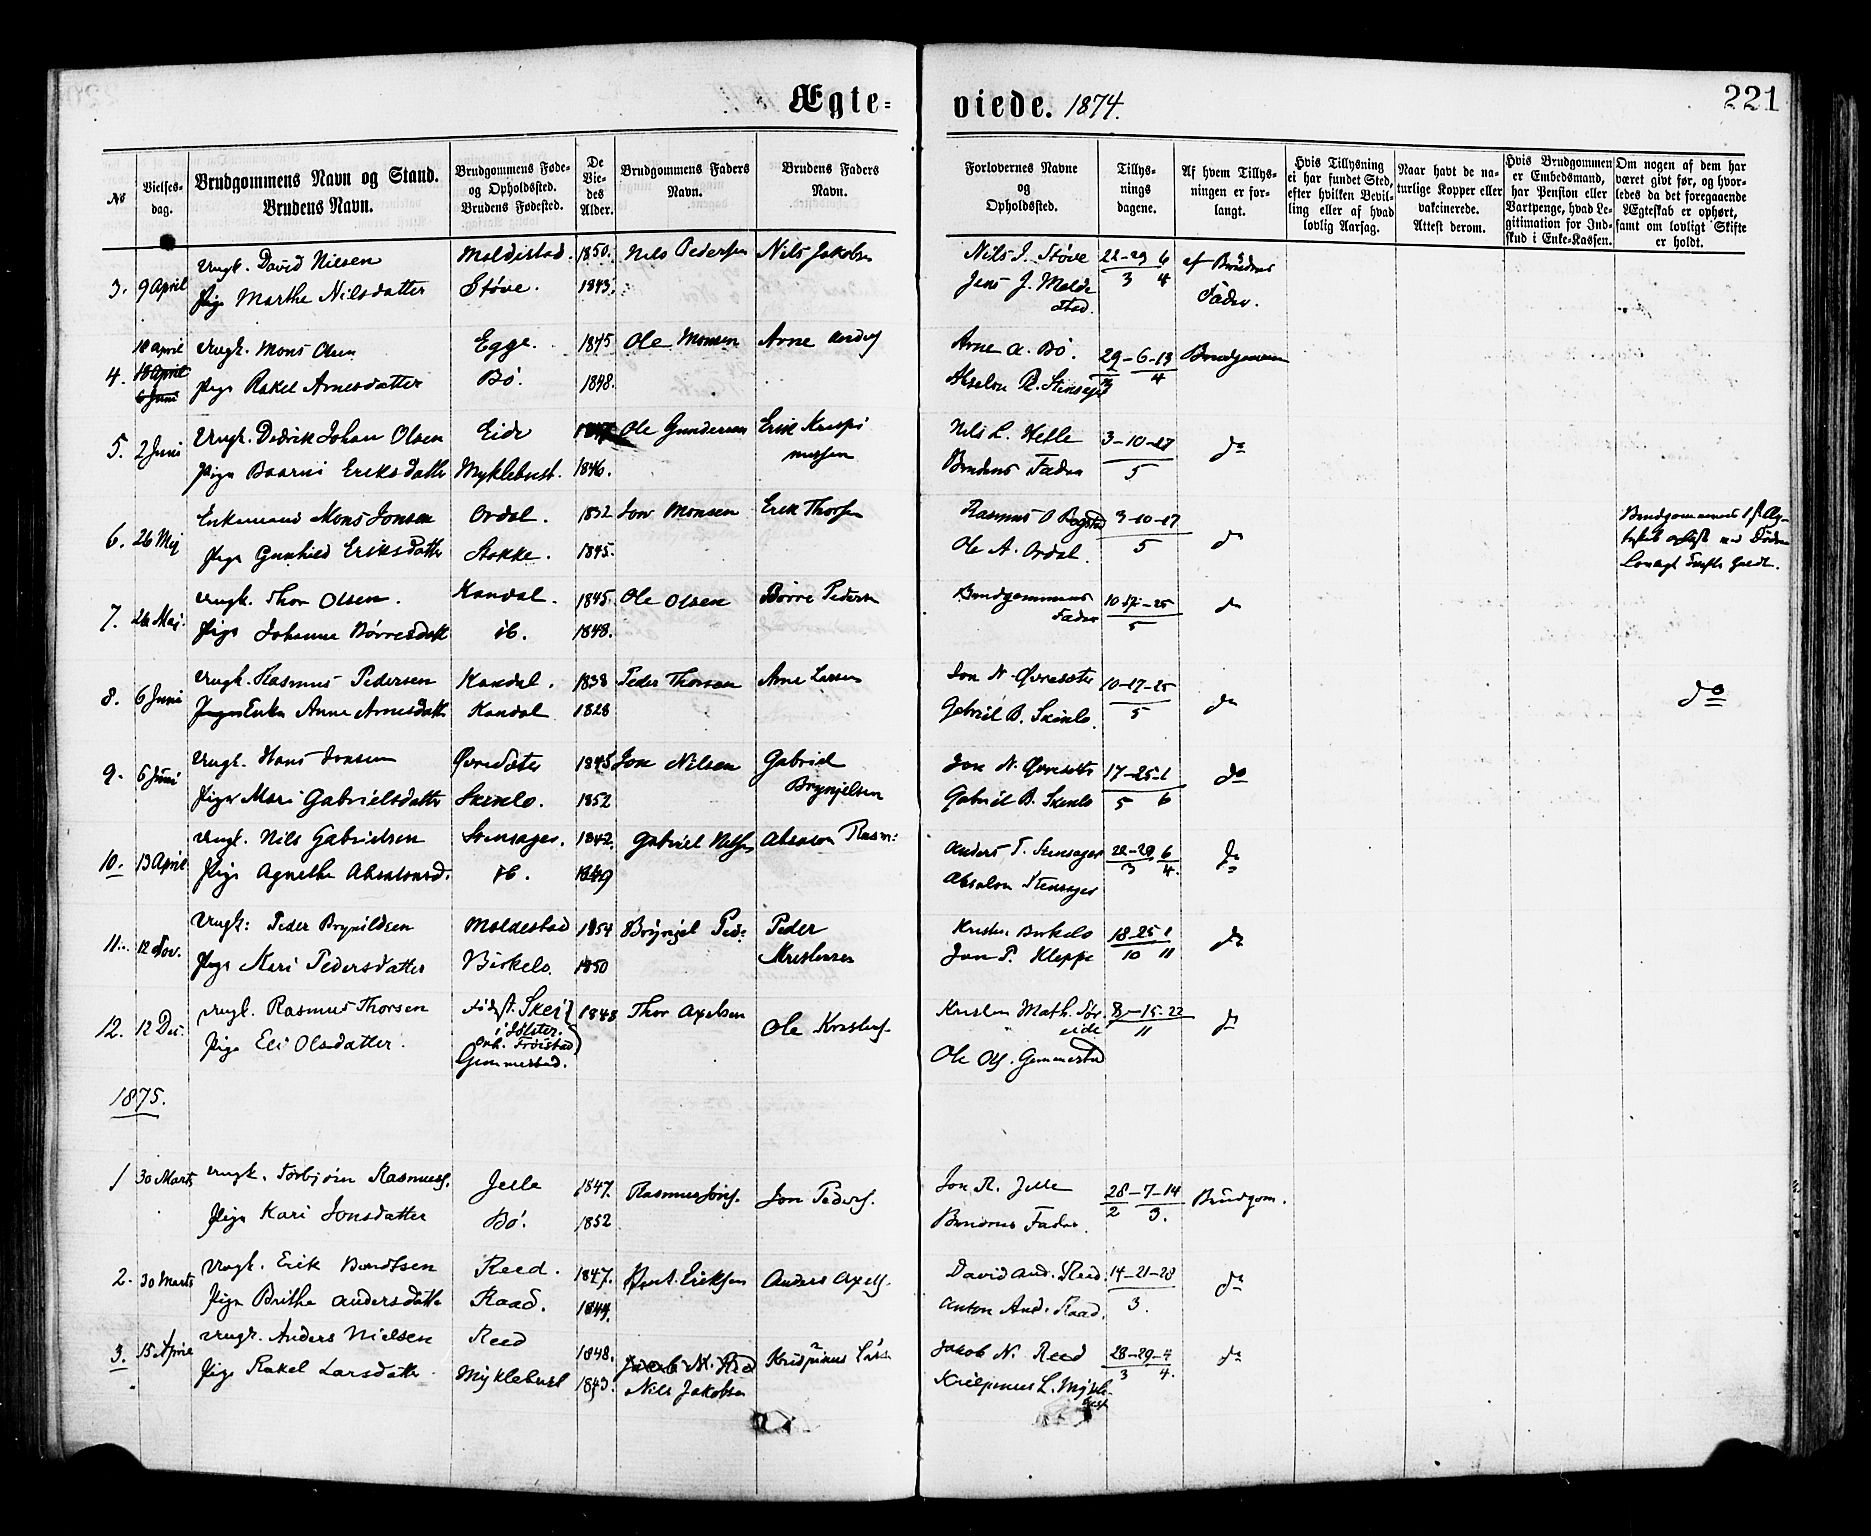 Ægte-
viede. 1874.
221
No
Vielses-
dag.
Brudgommens Navn og Stand.
Brudens Navn.
Brudgommens Føde-
og Opholdssted.
Brudens Fødested.
De
Vie-
des
Alder.
Brudgommens Faders
Navn.
Brudens Faders
Navn.
Forlovernes Navne
og
Opholdssted.
Tillys-
nings
dagene.
Af hvem Tillys-
ningen er for-
langt.
Hvis Tillysning
ei har fundet Sted,
efter hvilken Bevil-
ling eller af hvad
lovlig Aarsag.
Naar havt de na-
turlige Kopper eller
vakcinerede.
Attest derom.
Hvis Brudgommen
er Embedsmand,
har Pension eller
Vartpenge, hvad Le-
gitimation for Ind-
skud i Enke-Kassen.
Om nogen af dem har
været gift før, og hvor-
ledes da det foregaaende
Ægteskab er ophørt,
samt om lovligt Skifte
er holdt.
3. 9 April Ungk. David Nilsen Moldestad. 1850. Nils Pedersen Nils Jakobsen Nils J. Støve 22-29 6 af Brudens
Pige Marthe Nilsdatter Støve. 1843. Jens J. Molde 3 4 Fader.
stad.
18 April Ungk. Mons Olsen Egge. 1845 Ole Monsen Arne Anders Arne A. Bø. 29-6-13 Brudgommen
4. 18 April Pige Rakel Arnesdatter Bø. 1848. Absalon R. Stensager 3 4
6 Juni
5. 2 Juni Ungk. Dedrik Johan Olsen Eide Ole Gundersen Erik Krispi Nils L. Helle 3-10-17 do
nussen
Pige Eriksdatter Myklebust. 1846. Brudens Fader 5
6. 26 Mej Enkemand Mons Jonsen Ordal. 1832 Jon Monsen Erik Thorsen Rasmus O 3-10-17 do Brudgommens
Pige Gunhild Eriksdatter Stokke. 1845. Ole A. Ordal. 5
7. 26 Mai. Ungk. Thor Olsen. Kandal. 1845. Ole Olsen Børre Pedersen Brudgommens 10-17-25 do
Fader
Pige Johanne Børresdatt ib. 1848. 5
8. 6 Juni Ungk. Rasmus Pedersen Kandal. 1838 Peder Thorsen Arne Larsen Jon N. Øvresæter 10-17-25 do do
Pige Enke Anne Arnesdatt Kandal 1828 Gabriel B. Skinlo. 5
9. 6 Juni Ungk. Hans Jonsen Øvresæter 1845 Jon Nilsen Gabriel Jon N. Øvresæter 17-25-1 do
Pige Mari Gabrielsdatter Skinlo. 1852 Brynjelsen Gabriel B. Skinlo 5 6
10. 13 April Ungk. Nils Gabrielsen Stensager. 1842 Gabriel Nelsen Absalon Rasm: Anders T. Stensager 22-29 6 do
Pige Agnethe Absalonsd. ib. 1849 Absalon Stensager 3 4.
11. 12 Nov. Ungk: Peder Brynildsen Moldestad 1854 Brynjel Ped: Peder Kristen Birkelo 18-25 1 do
Pige Mari Pedersdatter Birkelo. 1850 Kristensen Jon P. Kleppe 10 11
12. 12 Dec. Ungk. Rasmus Thorsen Fødest. Skei 1848 Thor Axelsen Ole Kristens. Kristen Math. Sør 8-15-22 do
eide
i Jølster. 11
Pige Eli Olsdatter. Oph. Frøistad
Gimmestad. Ole Ols. Gimmestad
1875.
1 30 Marts Ungk. Torbjørn Rasmuss. Jelle 1847. Rasmus Jons. Jon Peders. Jon R. Jelle 28-7-14 Brudgom.
Pige Kari Jonsdatter Bø. 1852 Brudens Fader. 2 3.
2. 30 Marts Ungk. Erik Bendtsen Reed. 1847. Bent. Eriksen Anders Axels. David And. Reed. 14-21-28 do
Pige Brithe Andersdatte Raad. 1844. Anton And. Raad. 3.
3. 15 April Ungk. Anders Nielsen Reed 1848. Jakob N. Reed Krispinus Lars Jakob N. Reed 28-29-4 do
Pige Rakel Larsdatte Myklebust 1843. Nils Jakobsen Krispinus L. Mykle- 3 4.
bust